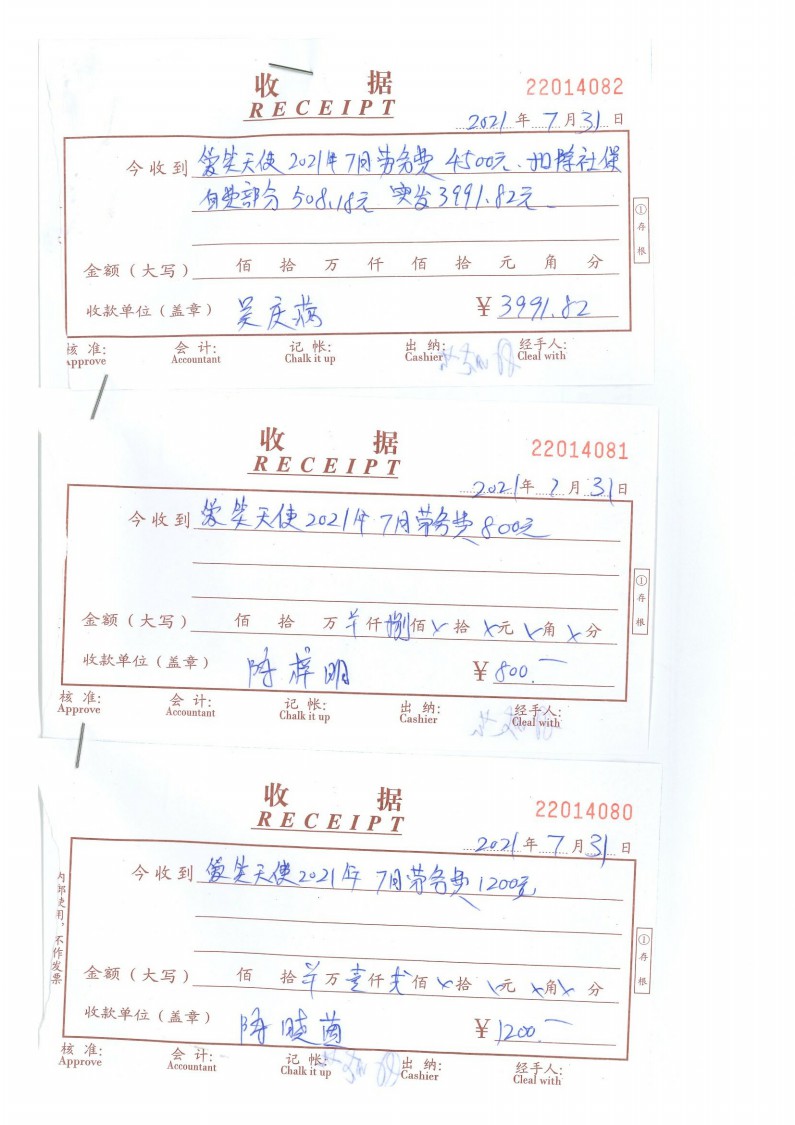 收 据
RECEIPT
22014082
2021 年 7 月 31 日
今收到 爱笑天使2021年7月劳务费 4500元、扣除社保
自费部分 508.18元 实发3991.82元
金额（大写） 佰 拾 万 仟 佰 拾 元 角 分
收款单位（盖章） 吴庆 ¥ 3991.82
核 准: 会 计: 记 帐: 出 纳: 经手人:
Approve Accountant Chalk it up Cashier Cleal with
①存根
收 据
RECEIPT
22014081
2021 年 7 月 31 日
今收到 爱笑天使2021年7月劳务费800元
金额（大写） 佰 拾 万 ¥ 仟 捌 佰 x 拾 x 元 x 角 x 分
收款单位（盖章） 陈梓明 ¥ 800.—
核 准: 会 计: 记 帐: 出 纳: 经手人:
Approve Accountant Chalk it up Cashier Cleal with
①存根
收 据
RECEIPT
22014080
2021 年 7 月 31 日
今收到 爱笑天使2021年7月劳务费1200元
金额（大写） 佰 拾 ¥ 万 壹 仟 贰 佰 x 拾 x 元 x 角 x 分
收款单位（盖章） 陈晓茵 ¥ 1200.—
核 准: 会 计: 记 帐: 出 纳: 经手人:
Approve Accountant Chalk it up Cashier Cleal with
①存根
内部使用，不作发票